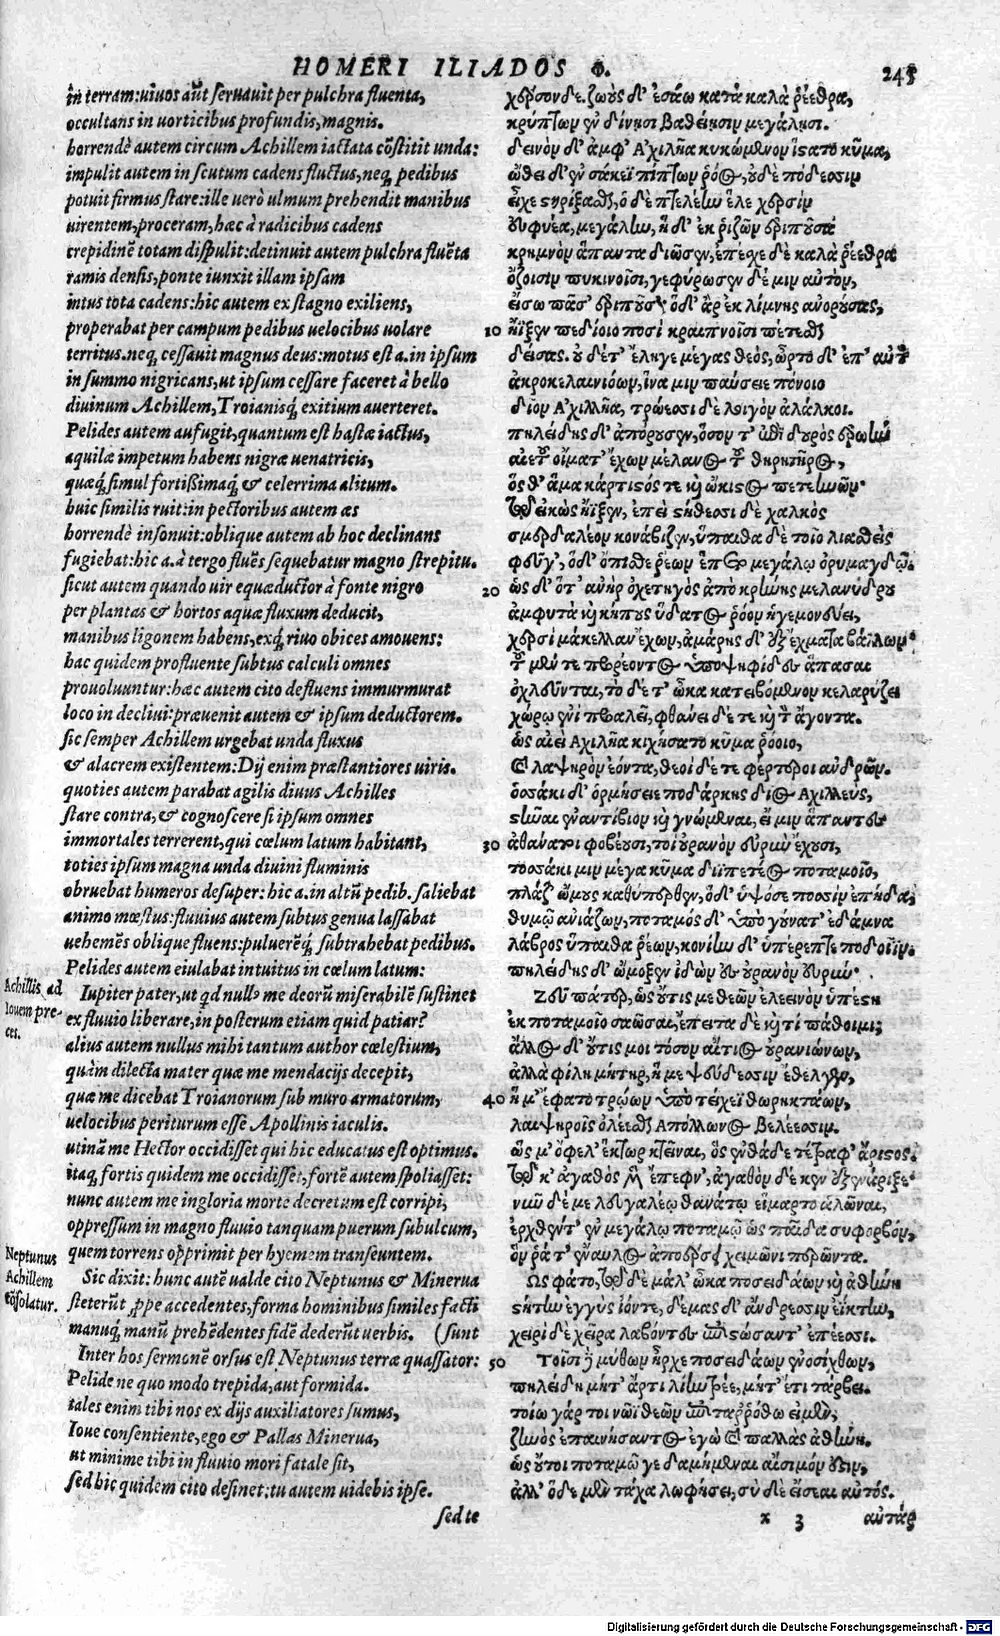 HOMERI ILIADOS Φ. 245
in terram: uiuos aũt seruauit per pulchra fluenta,
occultans in uorticibus profundis, magnis.
horrendè autem circum Achillem iactata cõstitit unda:
impulit autem in scutum cadens fluctus, neq; pedibus
potuit firmus stare: ille uerò ulmum prehendit manibus
uirentem, proceram, hæc à radicibus cadens
crepidinẽ totam dispulit: detinuit autem pulchra fluẽta
ramis densis, ponte iunxit illam ipsam
intus tota cadens: hic autem ex stagno exiliens,
properabat per campum pedibus uelocibus uolare
territus. neq; cessauit magnus deus: motus est a. in ipsum
in summo nigricans, ut ipsum cessare faceret à bello
diuinum Achillem, Troianisq́; exitium auerteret.
Pelides autem aufugit, quantum est hastæ iactus,
aquilæ impetum habens nigræ uenatricis,
quæq́; simul fortißimaq́; & celerrima alitum.
huic similis ruit: in pectoribus autem æs
horrendè insonuit: oblique autem ab hoc declinans
fugiebat: hic a. à tergo fluẽs sequebatur magno strepitu.
sicut autem quando uir equæductor à fonte nigro
per plantas & hortos aquæ fluxum deducit,
manibus ligonem habens, exq́; riuo obices amouens:
hac quidem profluente subtus calculi omnes
prouoluuntur: hæc autem cito defluens immurmurat
loco in decliui: præuenit autem & ipsum deductorem.
sic semper Achillem urgebat unda fluxus
& alacrem existentem: Dij enim præstantiores uiris.
quoties autem parabat agilis diuus Achilles
stare contra, & cognoscere si ipsum omnes
immortales terrerent, qui cœlum latum habitant,
toties ipsum magna unda diuini fluminis
obruebat humeros desuper: hic a. in altũ pedib. saliebat
animo mœstus: fluuius autem subtus genua lassabat
uehemẽs oblique fluens: puluerẽq́; subtrahebat pedibus.
Pelides autem eiulabat intuitus in cœlum latum:
Achillis ad Iouem preces.
Iupiter pater, ut qd nullᵒ me deorũ miserabilẽ sustinet
ex fluuio liberare, in posterum etiam quid patiar?
alius autem nullus mihi tantum author cœlestium,
quàm dilecta mater quæ me mendacijs decepit,
quæ me dicebat Troianorum sub muro armatorum,
uelocibus periturum esse Apollinis iaculis.
utinã me Hector occidisset qui hic educatus est optimus.
itaq; fortis quidem me occidisset, fortẽ autem spoliasset:
nunc autem me ingloria morte decretum est corripi,
oppressum in magno fluuio tanquam puerum subulcum,
quem torrens opprimit per hyemem transeuntem.
Neptunus Achillem cõsolatur.
Sic dixit: hunc autẽ ualde cito Neptunus & Minerua
steterũt ꝓpe accedentes, forma hominibus similes facti
manuq́; manũ prehẽdentes fidẽ dederũt uerbis. (sunt
Inter hos sermonẽ orsus est Neptunus terræ quassator:
Pelide ne quo modo trepida, aut formida.
tales enim tibi nos ex dijs auxiliatores sumus,
Ioue consentiente, ego & Pallas Minerua,
ut minime tibi in fluuio mori fatale sit,
sed hic quidem cito desinet: tu autem uidebis ipse.
sed te
χέρσονδε. ζωοὺς δ' ἐσάω κατὰ καλὰ ῥέεθρα,
κρύπτων ἐν δίνῃσι βαθείῃσιν μεγάλῃσι.
δεινὸν δ' ἀμφ' Ἀχιλῆα κυκώμενον ἵστατο κῦμα,
ὤθει δ' ἐν σάκεϊ πίπτων ῥόος, οὐδὲ πόδεσσιν
εἶχε στηρίξασθαι, ὁ δὲ πτελέην ἕλε χερσὶν
εὐφυέα, μεγάλην, ἡ δ' ἐκ ῥιζῶν ἐριποῦσα
κρημνὸν ἅπαντα διῶσεν, ἐπέσχε δὲ καλὰ ῥέεθρα
ὄζοισιν πυκινοῖσι, γεφύρωσεν δέ μιν αὐτὸν,
εἴσω πᾶσ' ἐριποῦσ' ὁ δ' ἄρ' ἐκ λίμνης ἀνορούσας,
10 ἤϊξεν πεδίοιο ποσὶ κραιπνοῖσι πέτεσθαι
δείσας. οὐδέ τ' ἔληγε μέγας θεὸς, ὦρτο δ' ἐπ' αὐτὸν
ἀκροκελαινιόων, ἵνα μιν παύσειε πόνοιο
δῖον Ἀχιλλῆα, τρώεσσι δὲ λοιγὸν ἀλάλκοι.
πηλείδης δ' ἀπόρουσεν, ὅσον τ' ἐπὶ δουρὸς ἐρωὴ
αἰετοῦ οἴματ' ἔχων μέλανος τοῦ θηρητῆρος,
ὅς θ' ἅμα κάρτιστός τε καὶ ὤκιστος πετεηνῶν·
τῷ εἰκὼς ἤϊξεν, ἐπὶ στήθεσσι δὲ χαλκὸς
σμερδαλέον κονάβιζεν, ὕπαιθα δὲ τοῖο λιασθεὶς
φεῦγ', ὁ δ' ὄπισθε ῥέων ἕπετο μεγάλῳ ὀρυμαγδῷ.
20 ὡς δ' ὅτ' ἀνὴρ ὀχετηγὸς ἀπὸ κρήνης μελανύδρου
ἀμφυτὰ καὶ κήπους ὕδατος ῥόον ἡγεμονεύει,
χερσὶ μάκελλαν ἔχων, ἀμάρης δ' ἐξ ἔχματα βάλλων·
τοῦ μέν τε προρέοντος ὑπὸ ψηφίδες ἅπασαι
ὀχλεῦνται, τὸ δέ τ' ὦκα κατειβόμενον κελαρύζει
χώρῳ ἐνὶ προαλεῖ, φθάνει δέ τε καὶ τὸν ἄγοντα.
ὡς αἰεὶ Ἀχιλῆα κιχήσατο κῦμα ῥόοιο,
καὶ λαιψηρὸν ἐόντα, θεοὶ δέ τε φέρτεροι ἀνδρῶν.
ὁσσάκι δ' ὁρμήσειε ποδάρκης δῖος Ἀχιλλεὺς,
στῆναι ἐναντίβιον καὶ γνώμεναι, εἴ μιν ἅπαντες
30 ἀθάνατοι φοβέουσι, τοὶ οὐρανὸν εὐρὺν ἔχουσι,
τοσσάκι μιν μέγα κῦμα διϊπετέος ποταμοῖο,
πλάζ' ὤμους καθύπερθεν, ὁ δ' ὑψόσε ποσσὶν ἐπήδα,
θυμῷ ἀνιάζων, ποταμὸς δ' ὑπὸ γούνατ' ἐδάμνα
λάβρος ὕπαιθα ῥέων, κονίην δ' ὑπέρεπτε ποδοῖϊν.
πηλείδης δ' ᾤμωξεν ἰδὼν εἰς οὐρανὸν εὐρύν·
Ζεῦ πάτερ, ὡς οὔτις με θεῶν ἐλεεινὸν ὑπέστη
ἐκ ποταμοῖο σαῶσαι, ἔπειτα δὲ καί τι πάθοιμι;
ἄλλος δ' οὔτις μοι τόσον αἴτιος οὐρανιώνων,
ἀλλὰ φίλη μήτηρ, ἥ με ψεύδεσσιν ἔθελγεν,
40 ἥ μ' ἔφατο τρώων ὑπὸ τείχεϊ θωρηκτάων,
λαιψηροῖς ὀλέεσθαι Ἀπόλλωνος βελέεσσιν.
ὥς μ' ὄφελ' ἕκτωρ κτεῖναι, ὃς ἐνθάδε τέτραφ' ἄριστος.
τῷ κ' ἀγαθὸς μὲν ἔπεφν', ἀγαθὸν δέ κεν ἐξενάριξε·
νῦν δέ με λευγαλέῳ θανάτῳ εἵμαρτο ἁλῶναι,
ἐρχθέντ' ἐν μεγάλῳ ποταμῷ ὡς παῖδα συφορβὸν,
ὅν ῥά τ' ἔναυλος ἀποέρσῃ χειμῶνι περῶντα.
Ὣς φάτο, τῷ δὲ μάλ' ὦκα ποσειδάων καὶ ἀθήνη
στήτην ἐγγὺς ἰόντε, δέμας δ' ἄνδρεσσιν ἐΐκτην,
χειρὶ δὲ χεῖρα λαβόντες ἐπιστώσαντ' ἐπέεσσι.
50 Τοῖσι δὲ μύθων ἦρχε ποσειδάων ἐνοσίχθων,
πηλείδη μήτ' ἄρτι λίην τρέε, μήτ' ἔτι τάρβει.
τοίω γάρ τοι νῶϊ θεῶν ἐπιταρρόθω εἰμὲν,
ζηνὸς ἐπαινήσαντος ἐγὼ καὶ παλλὰς ἀθήνη.
ὡς οὔτοι ποταμῷ γε δαμήμεναι αἴσιμόν ἐστιν,
ἀλλ' ὅδε μὲν τάχα λωφήσει, σὺ δὲ εἴσεαι αὐτός.
x 3 αὐτάρ
Digitalisierung gefördert durch die Deutsche Forschungsgemeinschaft - DFG